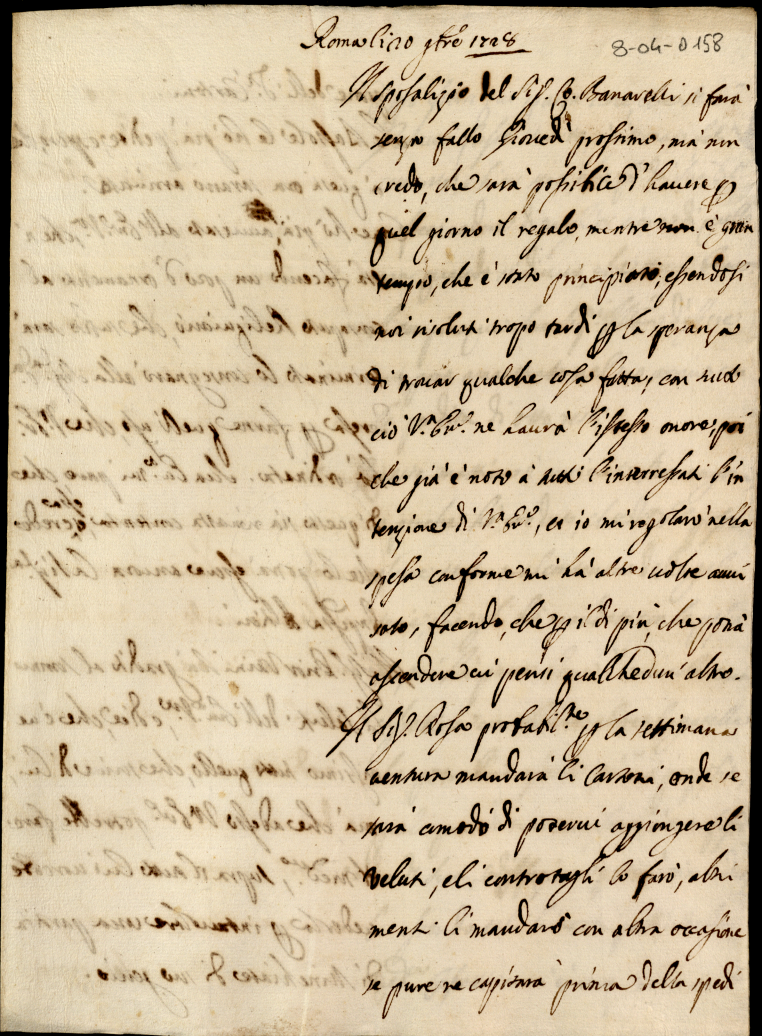 Roma li 20 9bre 1728
8-04-D158
Il sposalizio del Sig. Co. Banavelli si farà
senza fallo Giovedì prossimo, mà non
credo, che sarà possibile d'havere p
quel giorno il regalo, mentre non è gran
tempo, che è stato principiato, essendosi
noi risoluti tropo tardi p la speranza
di trovar qualche cosa fatta, con tutto
ciò V.a Ecc. ne haurà l'istesso onore, poi
che già è noto à tutti l'interressati l'in
tenzione di V.a Ecc., et io mi regolarò nella
spesa conforme mi hà altre volte avvi
sato, facendo, che p il di più, che potrà
ascendere ci pensi qualchedun' altro.
Il Sig. Rosa probabil.te p la settimana
ventura mandarà li Cartoni, onde se
sarà comodo di potervi aggiongere li
veluti, e li controtagli lo farò, altri
menti li mandarò con altra occasione
se pure ne capitarà prima della spedi